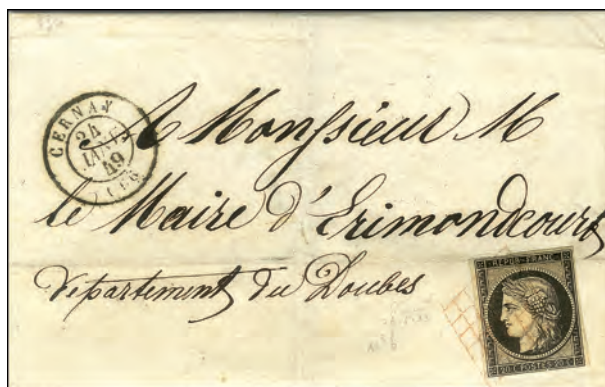 CERNAY
24
JANV.
49
(66)
A Monsieur M
le Maire d'Erimondcourt
département du Doubes
REPUB. FRANC.
20 C POSTES 20 C